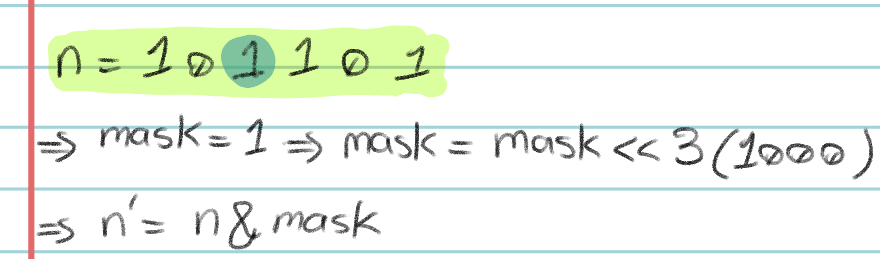 n = 1 0 1 1 0 1
⇒ mask = 1 ⇒ mask = mask << 3 (1000)
⇒ n' = n & mask